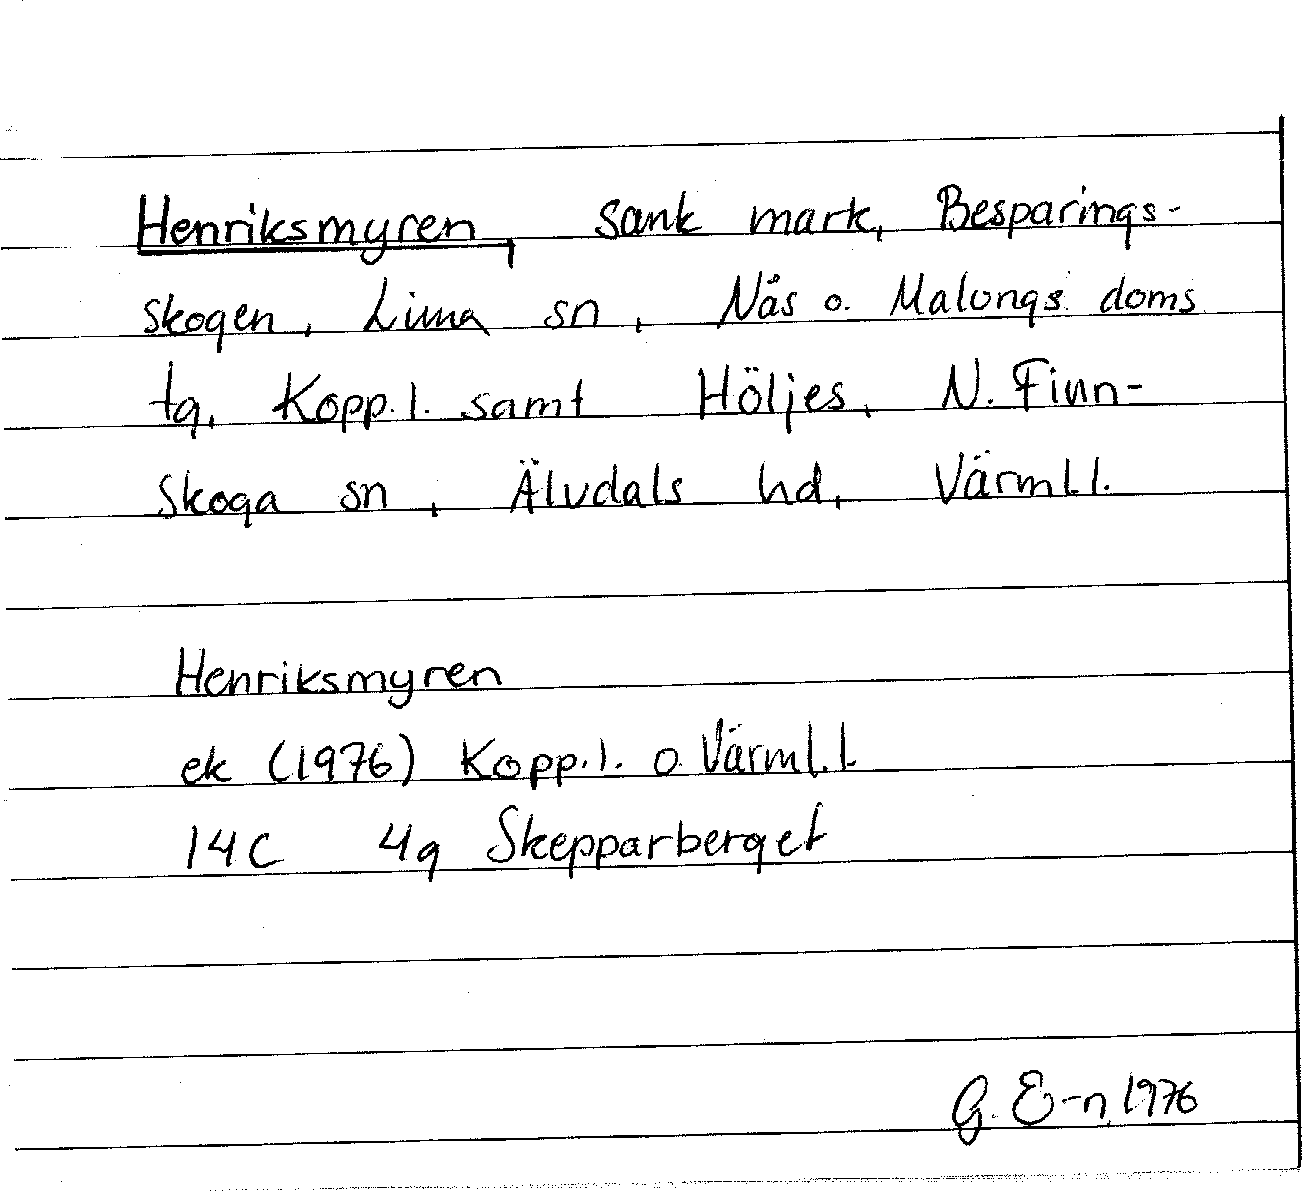 Henriksmyren, sank mark, Besparings-
skogen, Lima sn, Nås o. Malungs doms
tg, Kopp.l. samt Höljes, N. Finn-
skoga sn, Älvdals hd, Värml.l.
Henriksmyren
ek (1976) Kopp.l. o. Värml.l.
14C 4g Skepparberget
G. E-n, 1976